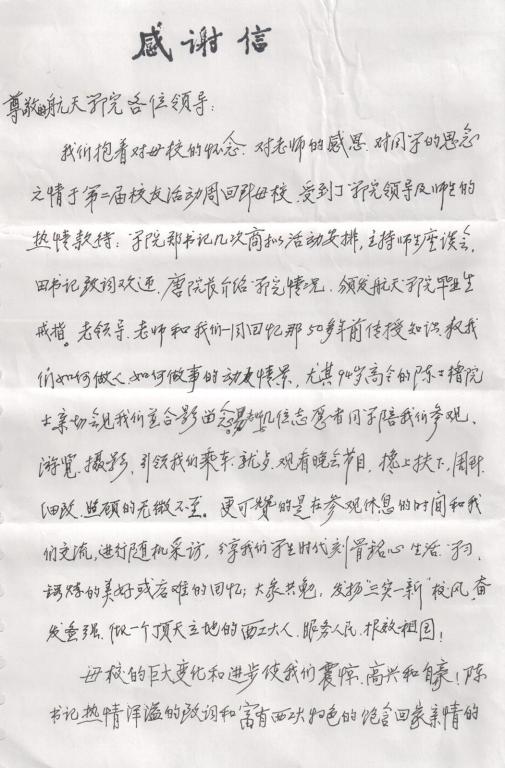 感谢信
尊敬的航天学院各位领导:
我们抱着对母校的怀念、对老师的感恩、对同学的思念
之情于第二届校友活动周回到母校,受到了学院领导及师生的
热情款待;学院那书记几次商拟活动安排,主持师生座谈会,
田书记致词欢迎,唐院长介绍学院情况,颁发航天学院毕业生
戒指。老领导、老师和我们一同回忆那50多年前传授知识、教我
们如何做人、如何做事的动人情景,尤其94岁高令的陈士橹院
士亲场会见我们并合影留念。几位志愿者同学陪我们参观、
游览、摄影,引领我们乘车、就歺、观看晚会节目,搀上扶下,周到
细致,照顾的无微不至。更可赞的是在参观休息的时间和我
们交流,进行随机采访,缐我们学生时代刻骨铭心生活、学习、
锻炼的美好或苦难的回忆;大家共勉,发扬“三实一新”校风,奋
发图强,做一个顶天立地的西工大人,服务人民,报效祖国!
母校的巨大变化和进步使我们震惊、高兴和自豪!陈
书记热情洋溢的致词和富有西工大特色的饱含回家亲情的